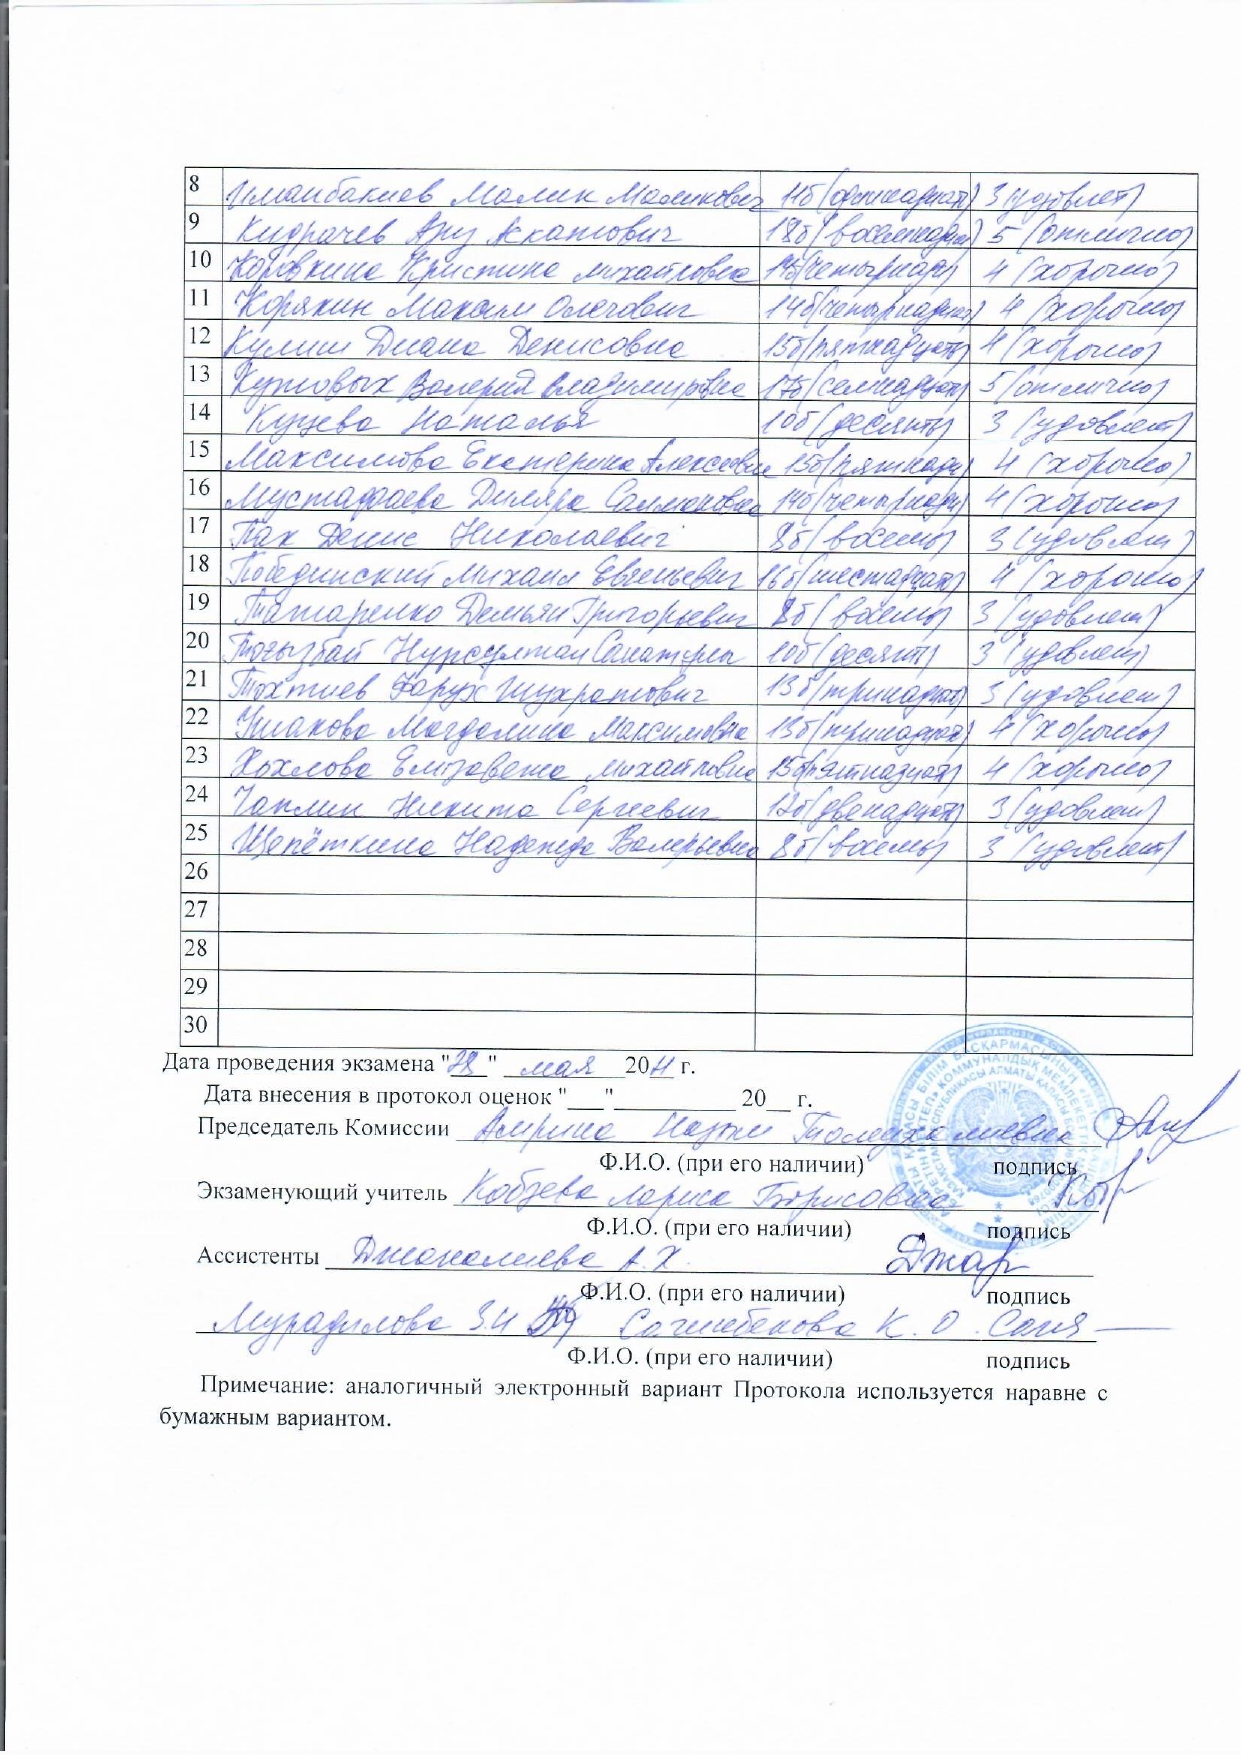 8 Иманбакиев Малик Маликович 11б (одиннадцат) 3 (удовлет)
9 Кидрачев Аряу Аскатович 18б (восемнадцат) 5 (отлично)
10 Коровкина Кристина Михайловна 14б (четырнадц) 4 (хорошо)
11 Корякин Максим Олегович 14б (четырнадцат) 4 (хорошо)
12 Кулиш Диана Денисовна 15б (пятнадцать) 4 (хорошо)
13 Валерия Владимировна 17б (семнадцать) 5 (отлично)
14 Куцева Наталья 10б (десять) 3 (удовлет)
15 Максимова Екатерина Алексеевна 15б (пятнадц) 4 (хорошо)
16 Мустафаева Диляра 14б (четырнадц) 4 (хорошо)
17 Пак Денис Николаевич 8б (восемь) 3 (удовлет)
18 Побединский Михаил Евгеньевич 16б (шестнадцат) 4 (хорошо)
19 Татаренко Демьян Григорьевич 8б (восемь) 3 (удовлет)
20 Тогызбай Нурсултан 10б (десять) 3 (удовлет)
21 Тохтиев Фарух Шухратович 13б (тринадцат) 3 (удовлет)
22 Ушакова Магдалина Максимовна 13б (тринадцат) 4 (хорошо)
23 Хохлова Елизавета Михайловна 15б (пятнадцат) 4 (хорошо)
24 Чаплин Никита Сергеевич 12б (двенадцат) 3 (удовлет)
25 Щепёткина Надежда Валерьевна 8б (восемь) 3 (удовлет)
26
27
28
29
30
Дата проведения экзамена "28" мая 20 г.
Дата внесения в протокол оценок "___"____________ 20__ г.
Председатель Комиссии Амрина Назым
Ф.И.О. (при его наличии) подпись
Экзаменующий учитель Кобзева Лариса Борисовна
Ф.И.О. (при его наличии) подпись
Ассистенты Джаналиева А.Х.
Ф.И.О. (при его наличии) подпись
Мурадилова З.И Сагинбекова К.О.
Ф.И.О. (при его наличии) подпись
Примечание: аналогичный электронный вариант Протокола используется наравне с
бумажным вариантом.